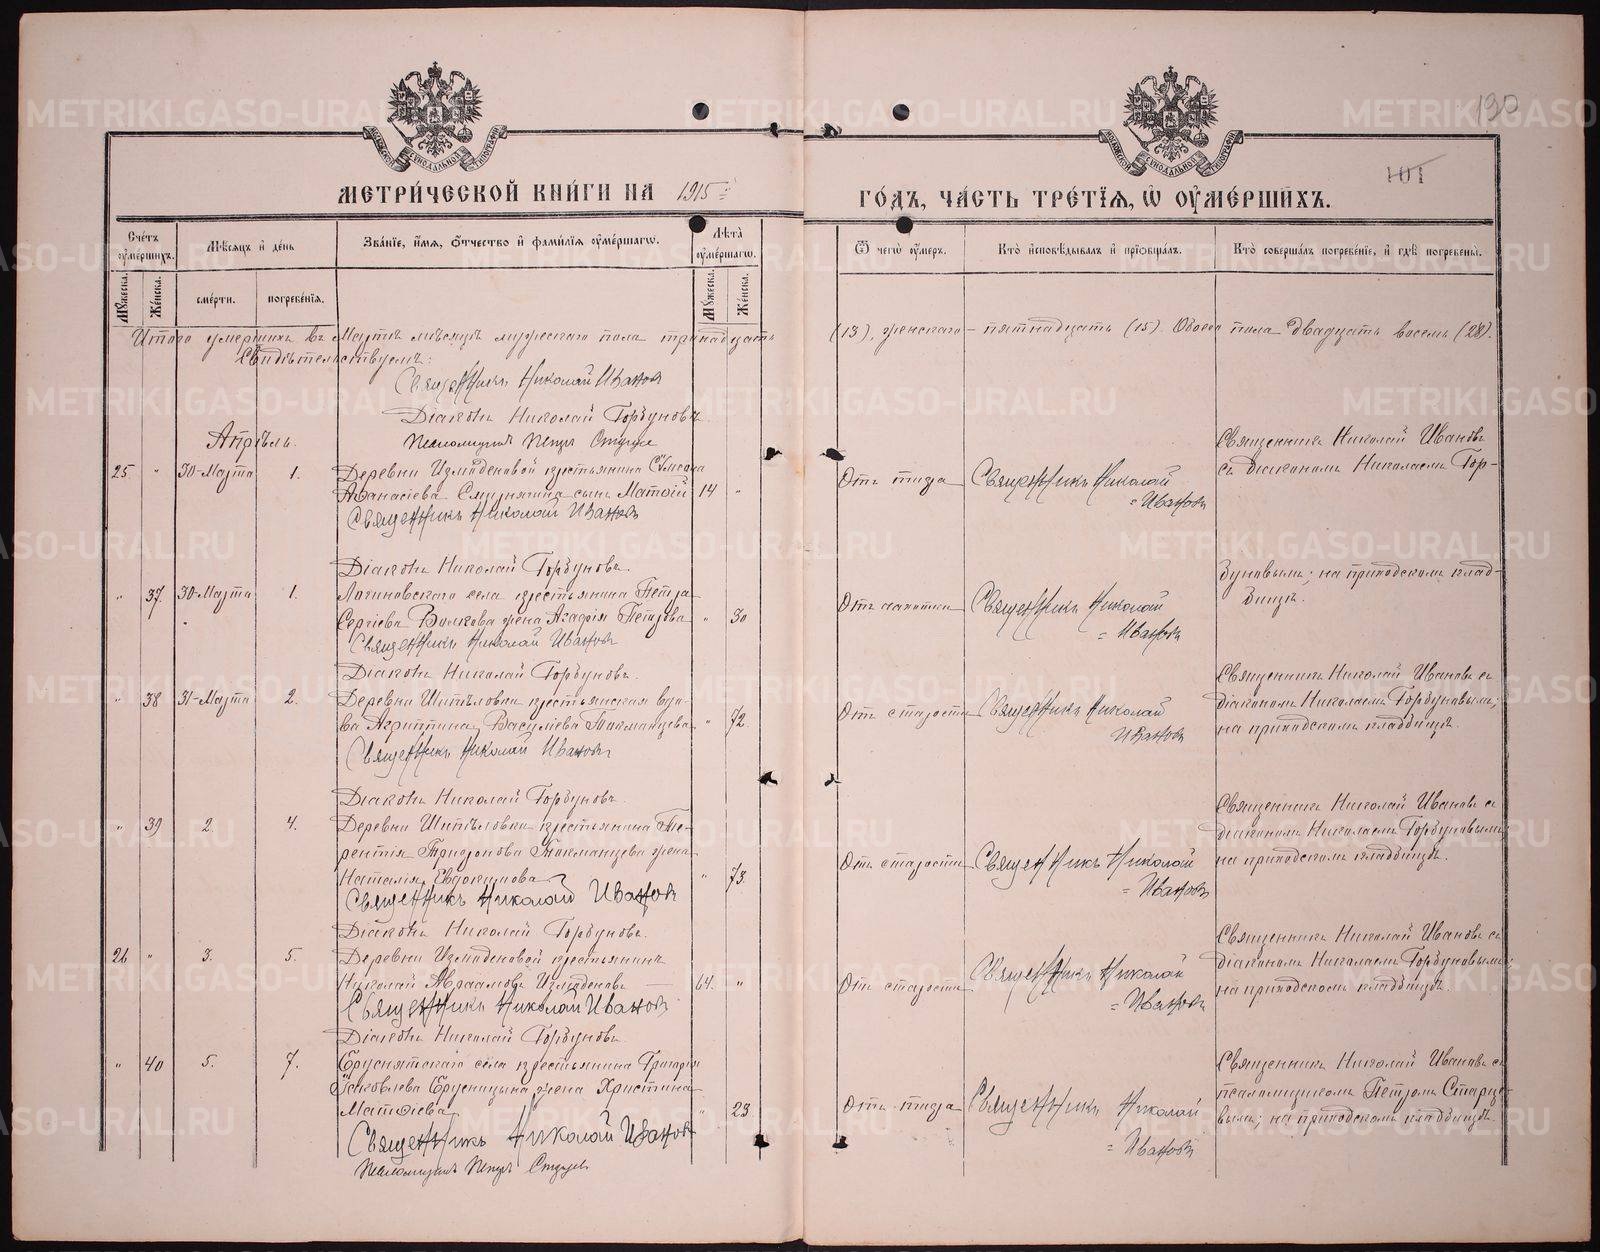 190
101
МОСКОВСКОЙ СѴНОДАЛЬНОЙ ТИПОГРАФІИ
МОСКОВСКОЙ СѴНОДАЛЬНОЙ ТИПОГРАФІИ
МЕТРИ́ЧЕСКОЙ КНИ́ГИ НА 1915 й ГО́ДЪ, ЧА́СТЬ ТРЕ́ТІЯ, Ѡ ОУМЕ́РШИХЪ.
Сче́тъ оуме́ршихъ.
Мѣ́сяцъ и де́нь
Зва́ніе, и́мя, о́тчество и фами́лія оуме́ршагѡ.
Лѣ́та оуме́ршагѡ.
Ѿ чегѡ̀ оу́меръ.
Кто̀ исповѣ́дывалъ и пріобща́лъ.
Кто̀ соверша́лъ погребе́ніе, и гдѣ̀ погребены̀.
Му́жеска.
Же́нска.
сме́рти.
погребе́нія.
Му́жеска.
Же́нска.
Итого умершихъ въ Мартѣ мѣсяцѣ мужескаго пола тринадцать (13), женскаго – пятнадцать (15). Обоего пола двадцать восемь (28).
Свидѣтельствуемъ:
Священникъ Николай Ивановъ
Діаконъ Николай Горбуновъ
Псаломщикъ Петръ
Апрѣль.
25 " 30-Марта 1.
Деревни Измоденовой крестьянина
Афанасіева сынъ Матѳій 14 "
Священникъ Николай Ивановъ
Діаконъ Николай Горбуновъ.
Священникъ Николай
= Ивановъ
Священникъ Николай Ивановъ
съ діакономъ Николаемъ Гор-
буновымъ; на приходскомъ клад-
бищѣ.
" 37. 30-Марта 1.
Логиновскаго села крестьянина Петра
Сергіева Волкова жена Агафія Петрова " 30
Священникъ Николай Ивановъ
Діаконъ Николай Горбуновъ.
Отъ чахотки
Священникъ Николай
= Ивановъ
" 38 31-Марта 2.
Деревни крестьянская вдо-
ва Агриппина Васильева Токманцева " 72.
Священникъ Николай Ивановъ
Діаконъ Николай Горбуновъ.
Отъ старости
Священникъ Николай
Ивановъ
Священникъ Николай Ивановъ съ
діакономъ Николаемъ Горбуновымъ;
на приходскомъ кладбищѣ.
" 39 2. 4.
Деревни крестьянина Те-
рентія Трифонова Токманцева жена
Наталія Евдокимова " 73.
Священникъ Николай Ивановъ
Діаконъ Николай Горбуновъ.
Отъ старости
Священникъ Николай
= Ивановъ
Священникъ Николай Ивановъ съ
діакономъ Николаемъ Горбуновымъ;
на приходскомъ кладбищѣ.
26 " 3. 5.
Деревни Измоденовой крестьянинъ
Николай Авраамовъ Измоденовъ — 64. "
Священникъ Николай Ивановъ
Діаконъ Николай Горбуновъ.
Отъ старости
Священникъ Николай
= Ивановъ
Священникъ Николай Ивановъ съ
діакономъ Николаемъ Горбуновымъ;
на приходскомъ кладбищѣ.
" 40 5. 7.
села крестьянина Григорія
Іаковлева Брусницына жена Христина
Матѳіева " 23
Священникъ Николай Ивановъ
Псаломщикъ Петръ
Священникъ Николай
= Ивановъ
Священникъ Николай Ивановъ съ
псаломщикомъ Петромъ Старце-
вымъ; на приходскомъ кладбищѣ.
METRIKI.GASO-URAL.RU